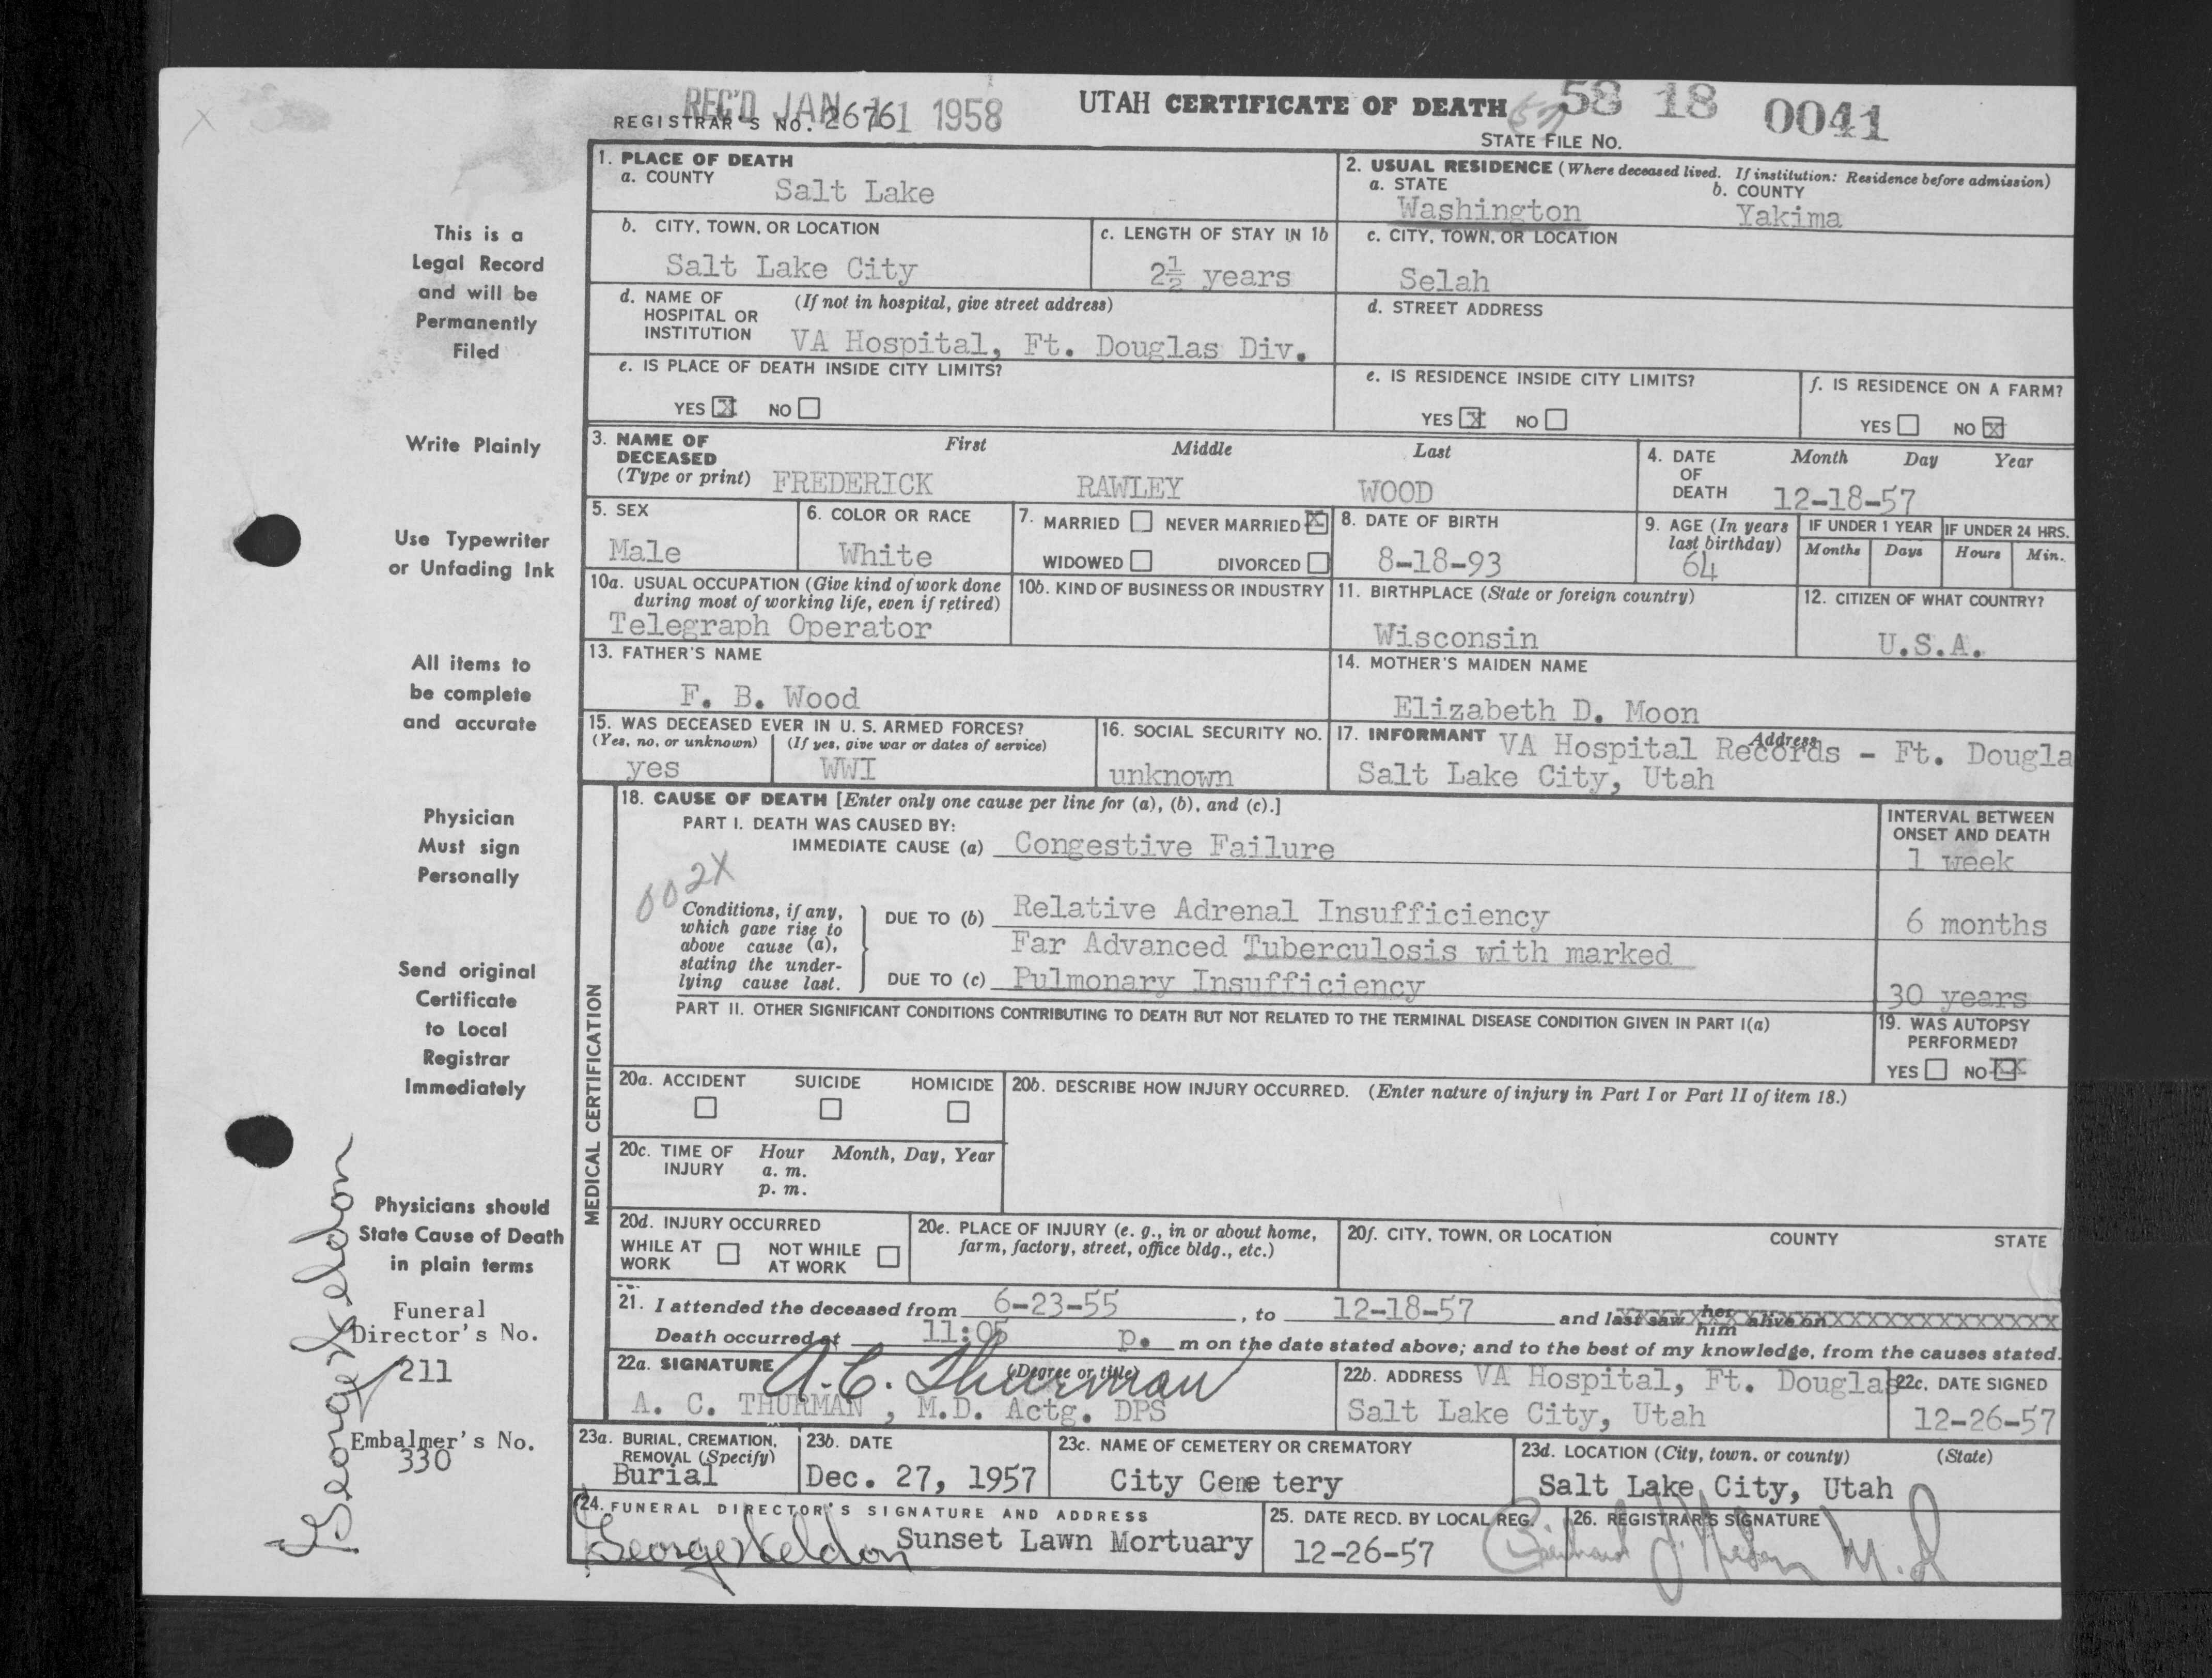 REC'D JAN 11 1958
UTAH CERTIFICATE OF DEATH
58 18 0041
REGISTRAR'S NO. 2676
STATE FILE NO.
This is a
Legal Record
and will be
Permanently
Filed
Write Plainly
Use Typewriter
or Unfading Ink
All items to
be complete
and accurate
Physician
Must sign
Personally
Send original
Certificate
to Local
Registrar
Immediately
Physicians should
State Cause of Death
in plain terms
Funeral
Director's No.
211
Embalmer's No.
330
George Seldon
1. PLACE OF DEATH
a. COUNTY
Salt Lake
2. USUAL RESIDENCE (Where deceased lived. If institution: Residence before admission)
a. STATE b. COUNTY
Washington Yakima
b. CITY, TOWN, OR LOCATION
Salt Lake City
c. LENGTH OF STAY IN 1b
2½ years
c. CITY, TOWN, OR LOCATION
Selah
d. NAME OF (If not in hospital, give street address)
HOSPITAL OR
INSTITUTION VA Hospital, Ft. Douglas Div.
d. STREET ADDRESS
e. IS PLACE OF DEATH INSIDE CITY LIMITS?
YES X NO
e. IS RESIDENCE INSIDE CITY LIMITS?
YES X NO
f. IS RESIDENCE ON A FARM?
YES NO X
3. NAME OF First Middle Last
DECEASED
(Type or print) FREDERICK RAWLEY WOOD
4. DATE Month Day Year
OF
DEATH 12-18-57
5. SEX
Male
6. COLOR OR RACE
White
7. MARRIED NEVER MARRIED X
WIDOWED DIVORCED
8. DATE OF BIRTH
8-18-93
9. AGE (In years
last birthday)
64
IF UNDER 1 YEAR
Months Days
IF UNDER 24 HRS.
Hours Min.
10a. USUAL OCCUPATION (Give kind of work done
during most of working life, even if retired)
Telegraph Operator
10b. KIND OF BUSINESS OR INDUSTRY
11. BIRTHPLACE (State or foreign country)
Wisconsin
12. CITIZEN OF WHAT COUNTRY?
U.S.A.
13. FATHER'S NAME
F. B. Wood
14. MOTHER'S MAIDEN NAME
Elizabeth D. Moon
15. WAS DECEASED EVER IN U. S. ARMED FORCES?
(Yes, no, or unknown) (If yes, give war or dates of service)
yes WWI
16. SOCIAL SECURITY NO.
unknown
17. INFORMANT Address
VA Hospital Records - Ft. Dougla
Salt Lake City, Utah
MEDICAL CERTIFICATION
18. CAUSE OF DEATH [Enter only one cause per line for (a), (b), and (c).]
PART I. DEATH WAS CAUSED BY:
IMMEDIATE CAUSE (a) Congestive Failure
INTERVAL BETWEEN
ONSET AND DEATH
1 week
002X
Conditions, if any,
which gave rise to
above cause (a),
stating the under-
lying cause last.
DUE TO (b) Relative Adrenal Insufficiency
6 months
Far Advanced Tuberculosis with marked
DUE TO (c) Pulmonary Insufficiency
30 years
PART II. OTHER SIGNIFICANT CONDITIONS CONTRIBUTING TO DEATH BUT NOT RELATED TO THE TERMINAL DISEASE CONDITION GIVEN IN PART I(a)
19. WAS AUTOPSY
PERFORMED?
YES NO XX
20a. ACCIDENT SUICIDE HOMICIDE
20b. DESCRIBE HOW INJURY OCCURRED. (Enter nature of injury in Part I or Part II of item 18.)
20c. TIME OF Hour Month, Day, Year
INJURY a. m.
p. m.
20d. INJURY OCCURRED
WHILE AT NOT WHILE
WORK AT WORK
20e. PLACE OF INJURY (e. g., in or about home,
farm, factory, street, office bldg., etc.)
20f. CITY, TOWN, OR LOCATION COUNTY STATE
21. I attended the deceased from 6-23-55, to 12-18-57 and last saw her him alive on
Death occurred at 11:05 p. m on the date stated above; and to the best of my knowledge, from the causes stated.
22a. SIGNATURE (Degree or title)
A. C. Thurman
A. C. THURMAN, M.D. Actg. DPS
22b. ADDRESS VA Hospital, Ft. Douglas
Salt Lake City, Utah
22c. DATE SIGNED
12-26-57
23a. BURIAL, CREMATION,
REMOVAL (Specify)
Burial
23b. DATE
Dec. 27, 1957
23c. NAME OF CEMETERY OR CREMATORY
City Cemetery
23d. LOCATION (City, town, or county) (State)
Salt Lake City, Utah
24. FUNERAL DIRECTOR'S SIGNATURE AND ADDRESS
George Seldon Sunset Lawn Mortuary
25. DATE RECD. BY LOCAL REG.
12-26-57
26. REGISTRAR'S SIGNATURE
M.D